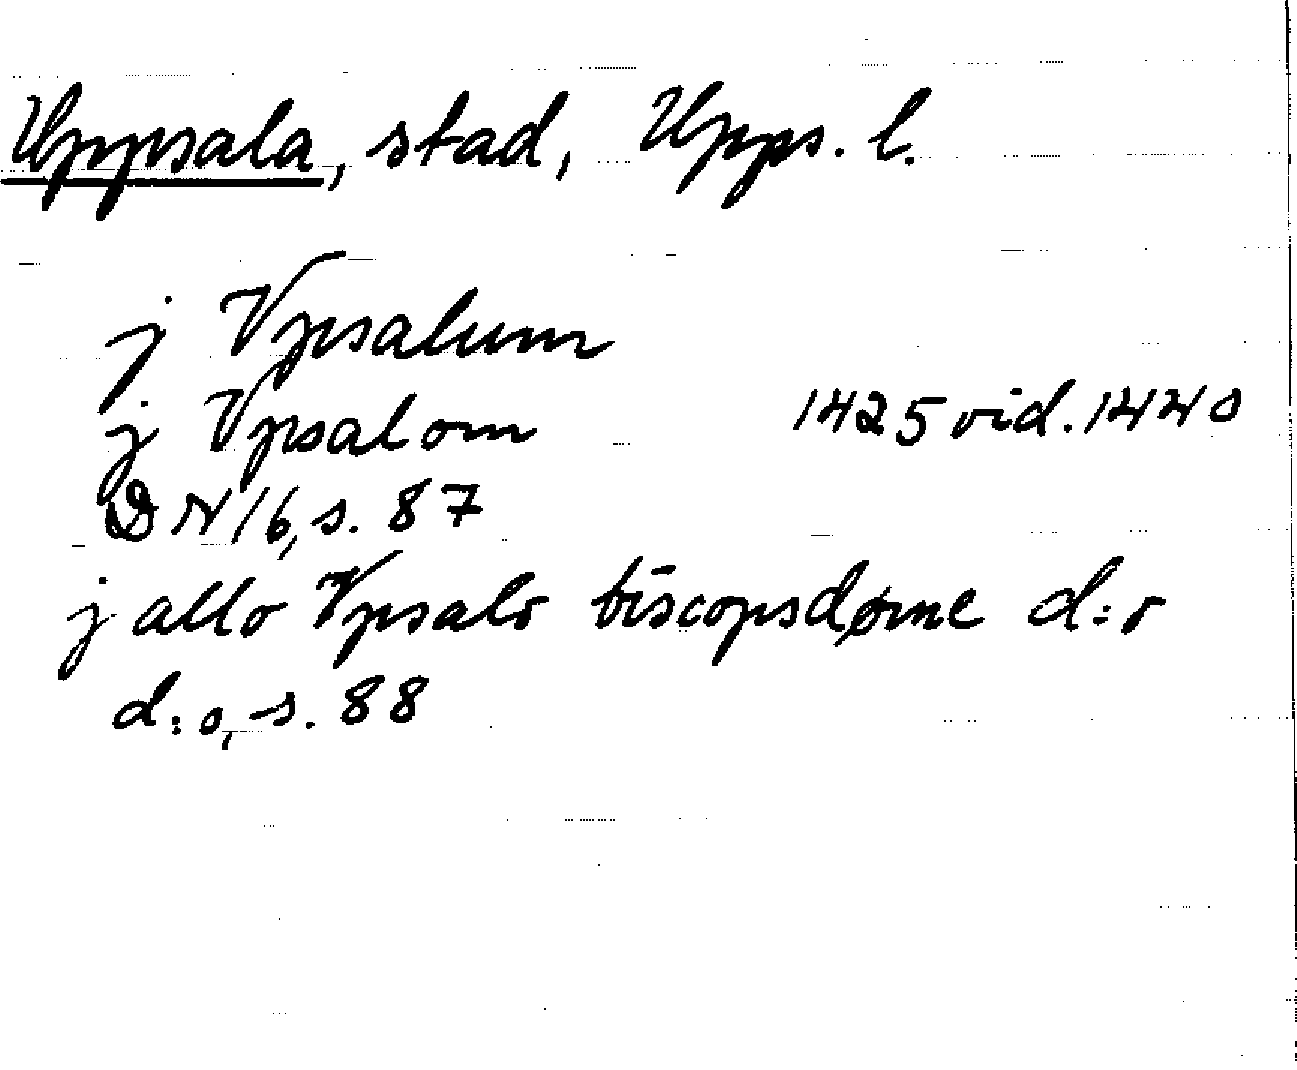 Uppsala, stad, Upps. l.
j Vpsalum
j Vpsalom 1425 vid. 1440
DN 16, s. 87
j allo Vpsalo biscopsdøme d:o
d:o, s. 88